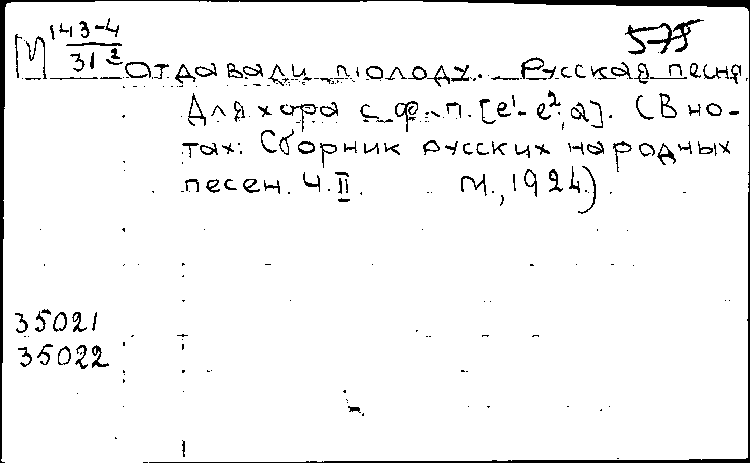 М 143-4 575
31²
Отдавали молоду. Русская песня.
Для хора с ф-п. [e¹-e², a]. (В но-
тах: Сборник русских народных
песен. Ч. II. М., 1924.)
35021
35022